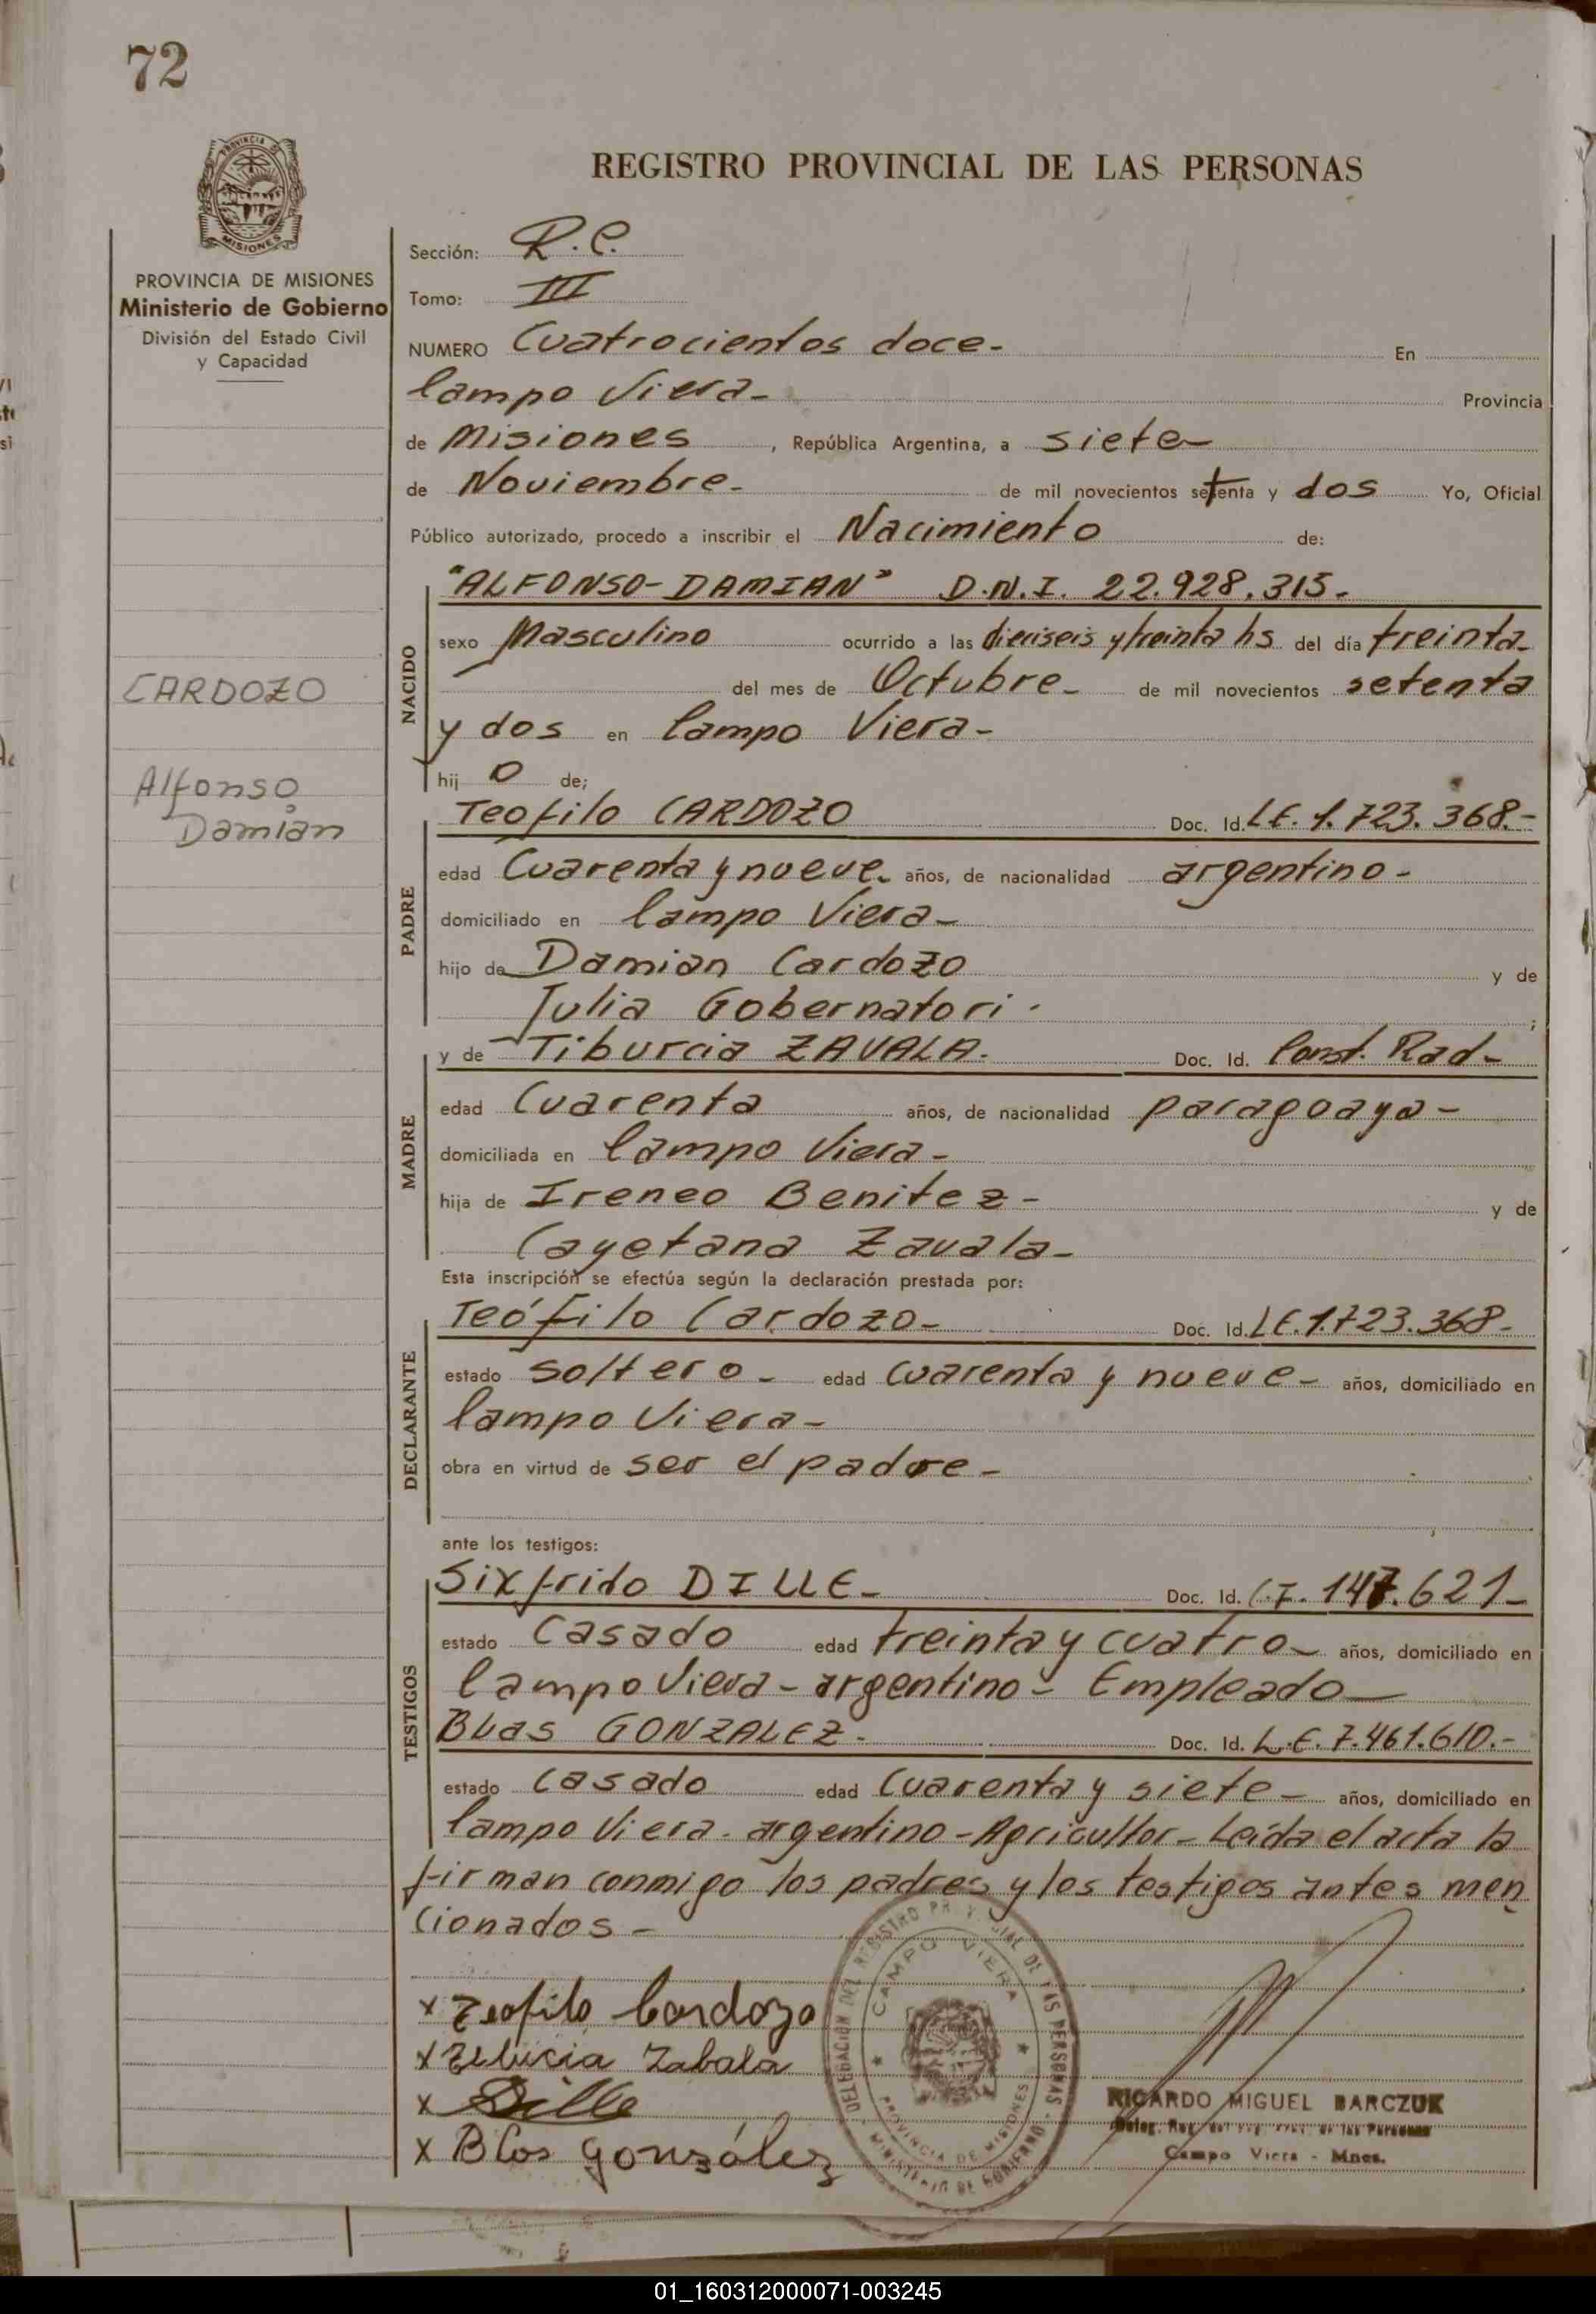 72
PROVINCIA DE
MISIONES
PROVINCIA DE MISIONES
Ministerio de Gobierno
División del Estado Civil
y Capacidad
CARDOZO
Alfonso
Damian
REGISTRO PROVINCIAL DE LAS PERSONAS
Sección: R.C.
Tomo: III
NUMERO Cuatrocientos doce- En
Campo Viera- Provincia
de Misiones, República Argentina, a siete-
de Noviembre- de mil novecientos setenta y dos Yo, Oficial
Público autorizado, procedo a inscribir el Nacimiento de:
NACIDO
"ALFONSO-DAMIAN" D.N.I. 22.928.315-
sexo Masculino ocurrido a las dieciseis y treinta hs del día treinta-
del mes de Octubre- de mil novecientos setenta
y dos en Campo Viera-
hij o de;
PADRE
Teofilo CARDOZO Doc. Id. LE. 1.723.368.-
edad Cuarenta y nueve- años, de nacionalidad argentino-
domiciliado en Campo Viera-
hijo de Damian Cardozo y de
Julia Gobernatori. ;
MADRE
y de Tiburcia ZAVALA. Doc. Id. Const. Rad-
edad Cuarenta años, de nacionalidad paragoaya-
domiciliada en Campo Viera-
hija de Ireneo Benitez- y de
Cayetana Zavala-
Esta inscripción se efectúa según la declaración prestada por:
DECLARANTE
Teófilo Cardozo- Doc. Id. LE.1.723.368-
estado soltero- edad cuarenta y nueve- años, domiciliado en
Campo Viera-
obra en virtud de ser el padre-
ante los testigos:
TESTIGOS
Sixfrido DILLE- Doc. Id. C.I. 147.621-
estado Casado edad treinta y cuatro- años, domiciliado en
Campo Viera-argentino-Empleado-
BLas GONZALEZ- Doc. Id. L.E. 7.461.610.-
estado casado edad Cuarenta y siete- años, domiciliado en
Campo Viera-argentino-Agricultor-Leída el acta la
firman conmigo los padres y los testigos antes men
cionados-
x Teofilo Cardozo
x Zabala
x Dille
x Blas González
DELEGACIÓN DEL REGISTRO PROVINCIAL DE LAS PERSONAS
CAMPO VIERA
PROVINCIA DE MISIONES
MINISTERIO DE GOBIERNO
RICARDO MIGUEL BARCZUK
de las Personas
Campo Viera - Mnes.
01_160312000071-003245